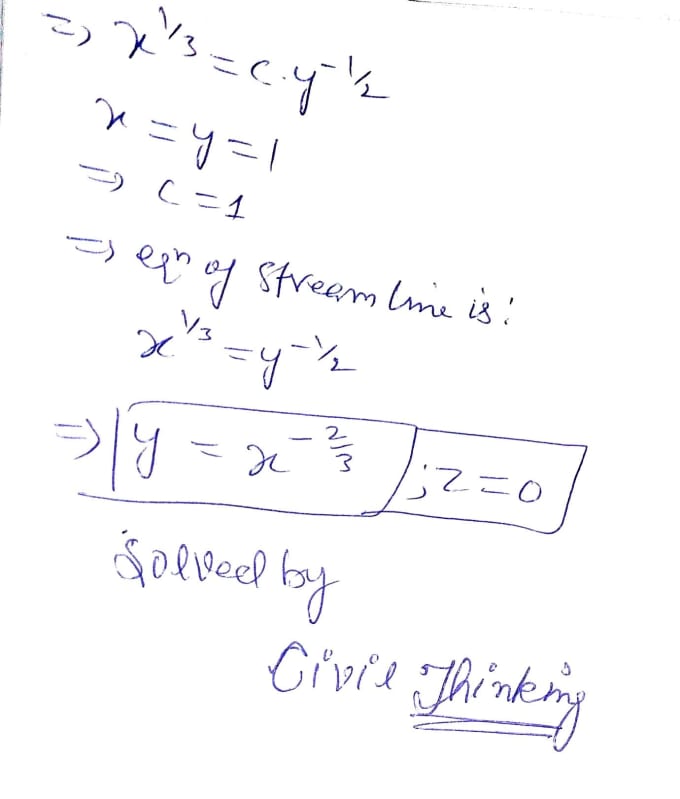 => x^1/3 = c.y^-1/2
x = y = 1
=> c = 1
=> eqn of Stream line is:
x^1/3 = y^-1/2
=> y = x^-2/3 ; z = 0
Solved by
Civil Thinking